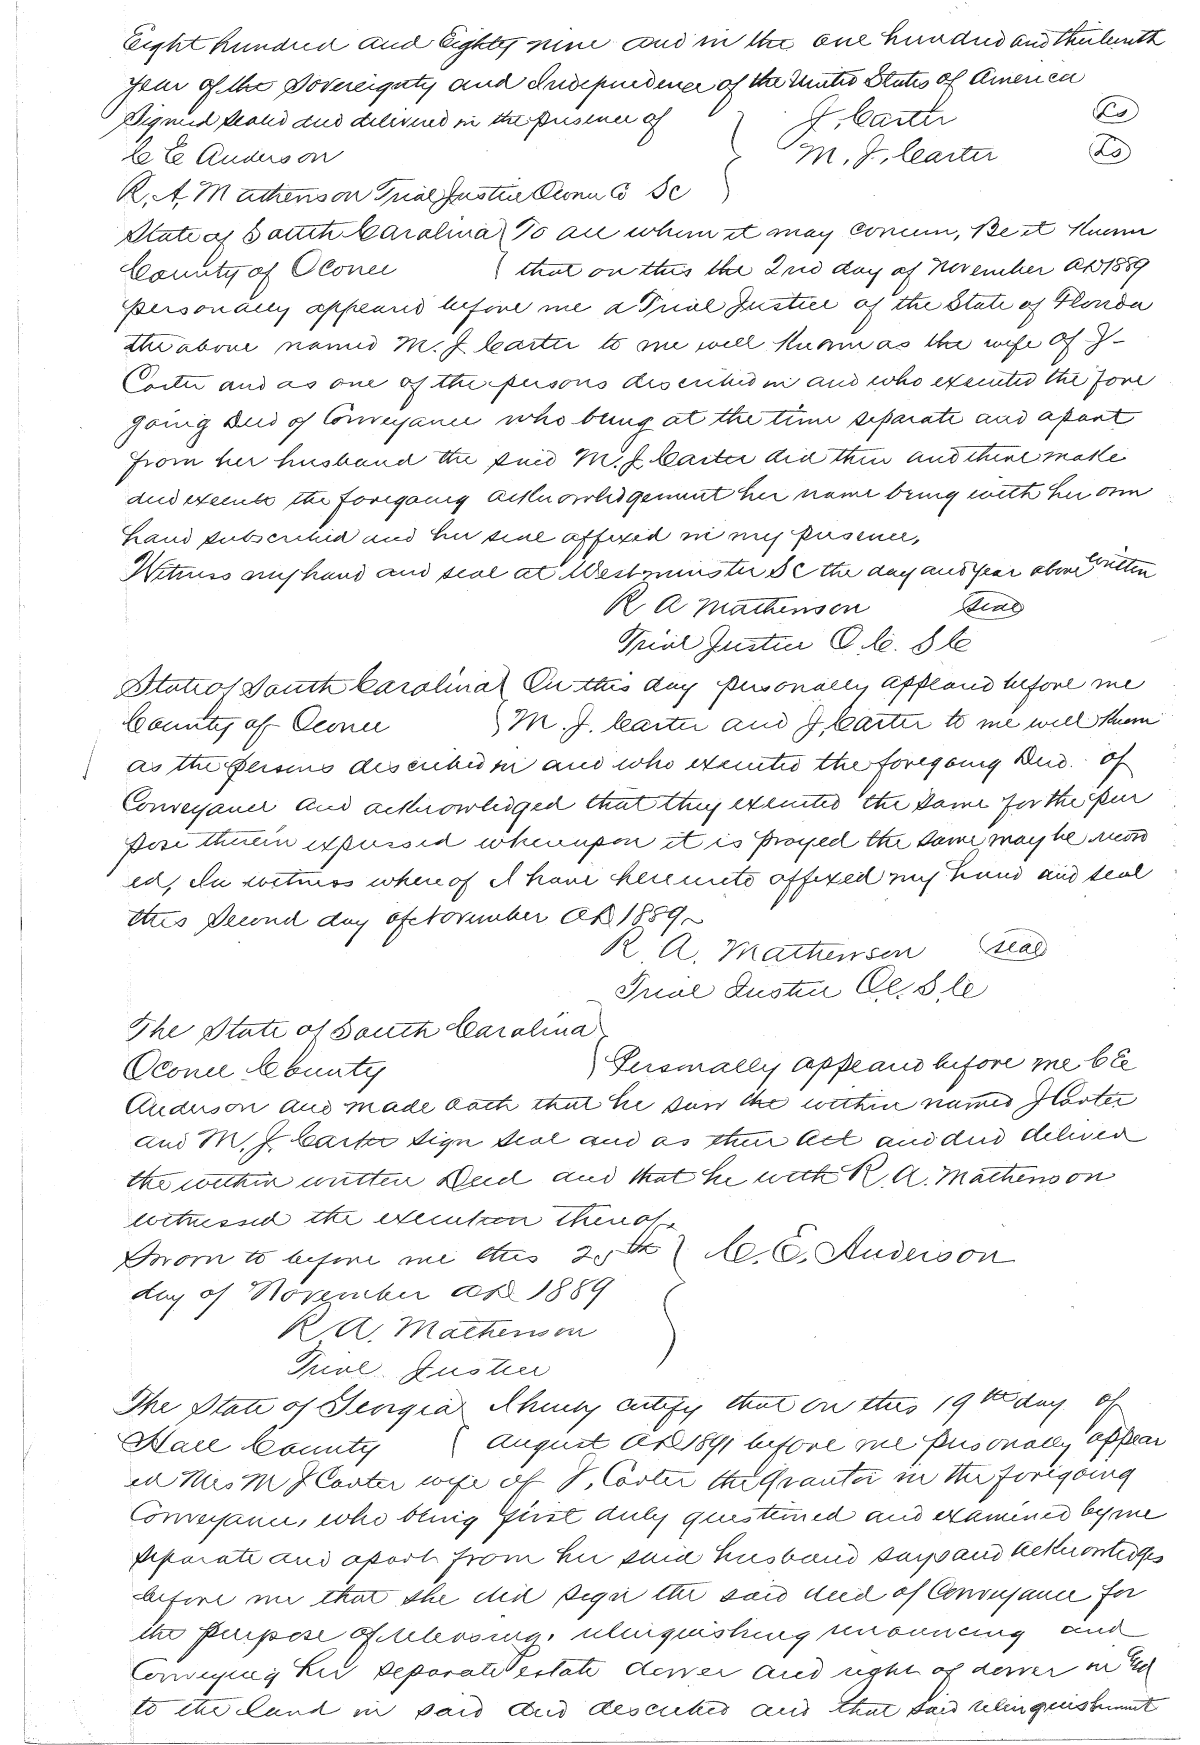 Eight hundred and Eighty nine and in the one hundred and thirteenth
year of the Sovereignty and Independence of the United States of America
Signed sealed and delivered in the presence of J. Carter LS
C E Anderson M. J. Carter LS
R. A. Mathenson Trial Justice Oconee Co SC
State of South Carolina To all whom it may concern, Be it Known
County of Oconee that on this the 2nd day of November AD 1889
personally appeared before me a Trial Justice of the State of Florida
the above named M. J Carter to me well Known as the wife of J-
Carter and as one of the persons described in and who executed the fore
going Deed of Conveyance who being at the time separate and apart
from her husband the said M. J Carter did then and there make
and execute the foregoing acknowledgement her name being with her own
hand subscribed and her seal affixed in my presence,
Witness my hand and seal at Westminster SC the day and year above written
R A Mathenson seal
Trial Justice O. C. S C
State of South Carolina On this day personally appeared before me
County of Oconee M. J. Carter and J, Carter to me well Known
as the persons described in and who executed the foregoing Deed of
Conveyance and acknowledged that they executed the same for the pur
pose therein expressed whereupon it is prayed the same may be record
ed, In witness whereof I have hereunto affixed my hand and seal
this Second day of November AD 1889~
R. A. Mathenson seal
Trial Justice O C. S C
The State of South Carolina
Oconee County Personally appeared before me C E
Anderson and made oath that he saw the within named J Carter
and M. J. Carter sign seal and as their Act and deed deliver
the within written Deed and that he with R. A. Mathenson
witnessed the execution thereof.
Sworn to before me this 25th C. E. Anderson
day of November AD 1889
R A. Mathenson
Trial Justice
The State of Georgia I hereby certify that on this 19th day of
Hall County August AD 1891 before me personally appear
ed Mrs M J Carter wife of J. Carter the Grantor in the foregoing
Conveyance, who being first duly questioned and examined by me
separate and apart from her said husband says and acknowledges
before me that she did sign the said deed of Conveyance for
the purpose of releasing, relinquishing renouncing and
Conveying her separate estate dower and right of dower in and
to the land in said deed described and that said relinquishment